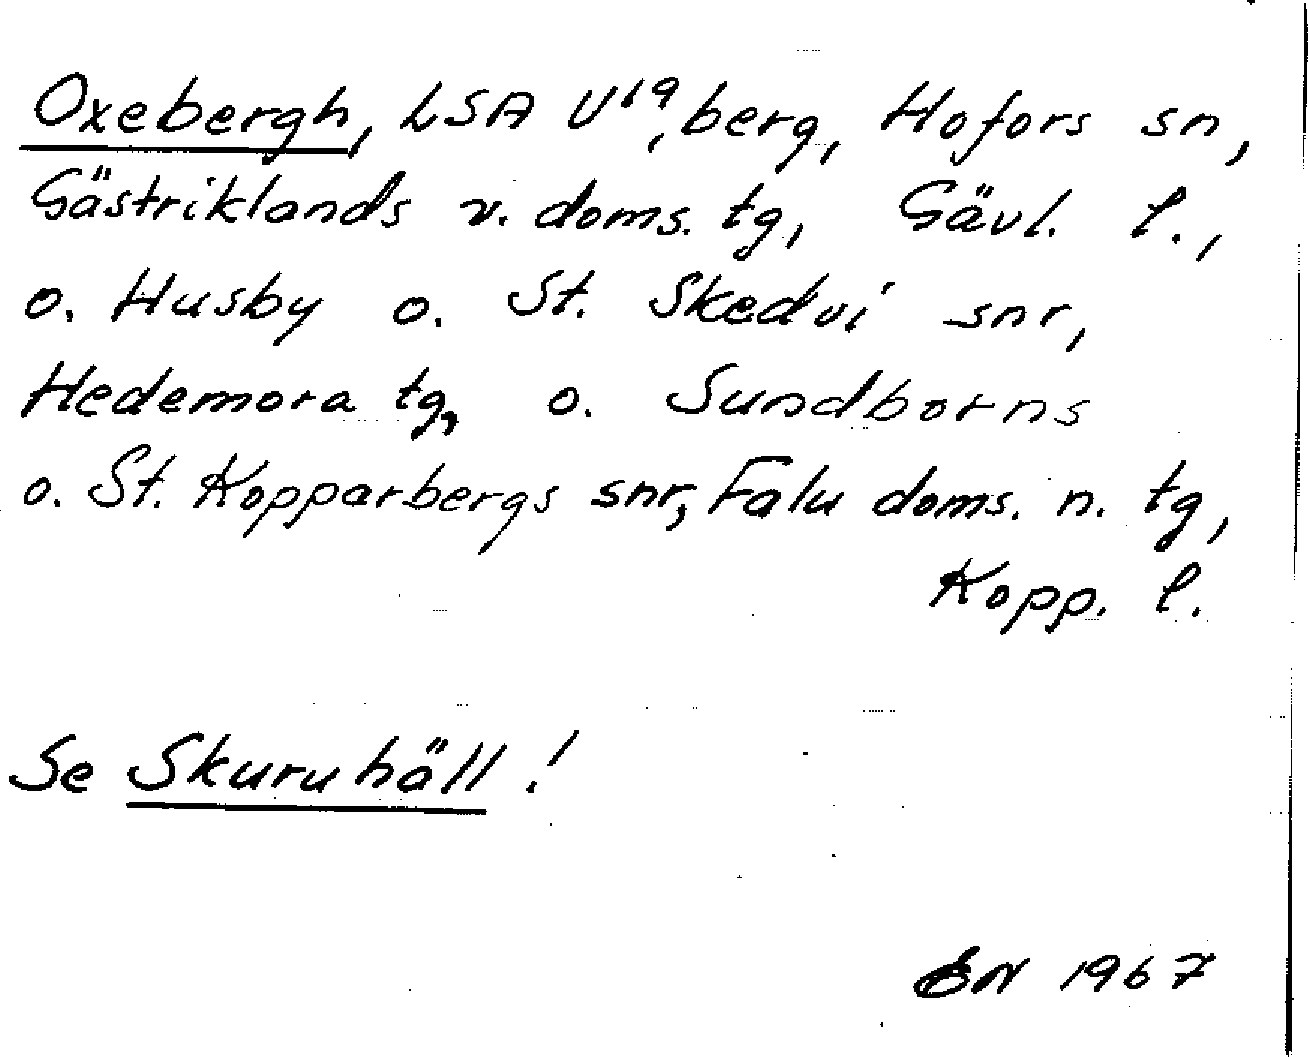 Oxebergh, LSA U¹⁹, berg, Hofors sn,
Gästriklands v. doms. tg, Gävl. l.,
o. Husby o. St. Skedvi snr,
Hedemora tg, o. Sundborns
o. St. Kopparbergs snr, Falu doms. n. tg,
Kopp. l.
Se Skuruhäll!
EN 1967